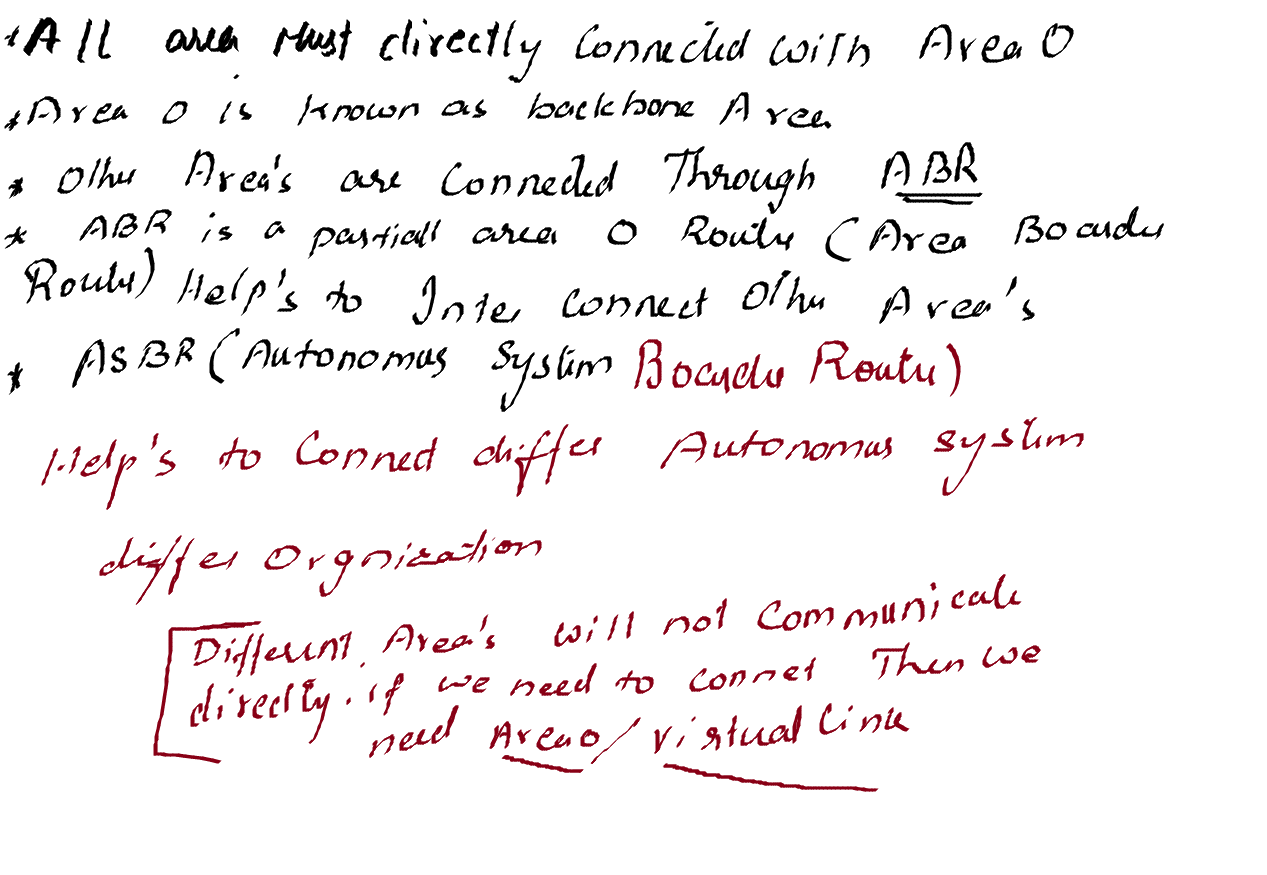 * All area Must directly Connected with Area 0
* Area 0 is known as backbone Area
* Other Area's are Connected Through ABR
* ABR is a partiall area 0 Router (Area Boarder
Router) Help's to Inter connect Other Area's
* ASBR (Autonomus System Boarder Router)
Help's to Connect differ Autonomus system
differ Orgnization
Different Area's will not communicate
directly. if we need to connet Then we
need Area 0/ virtual link